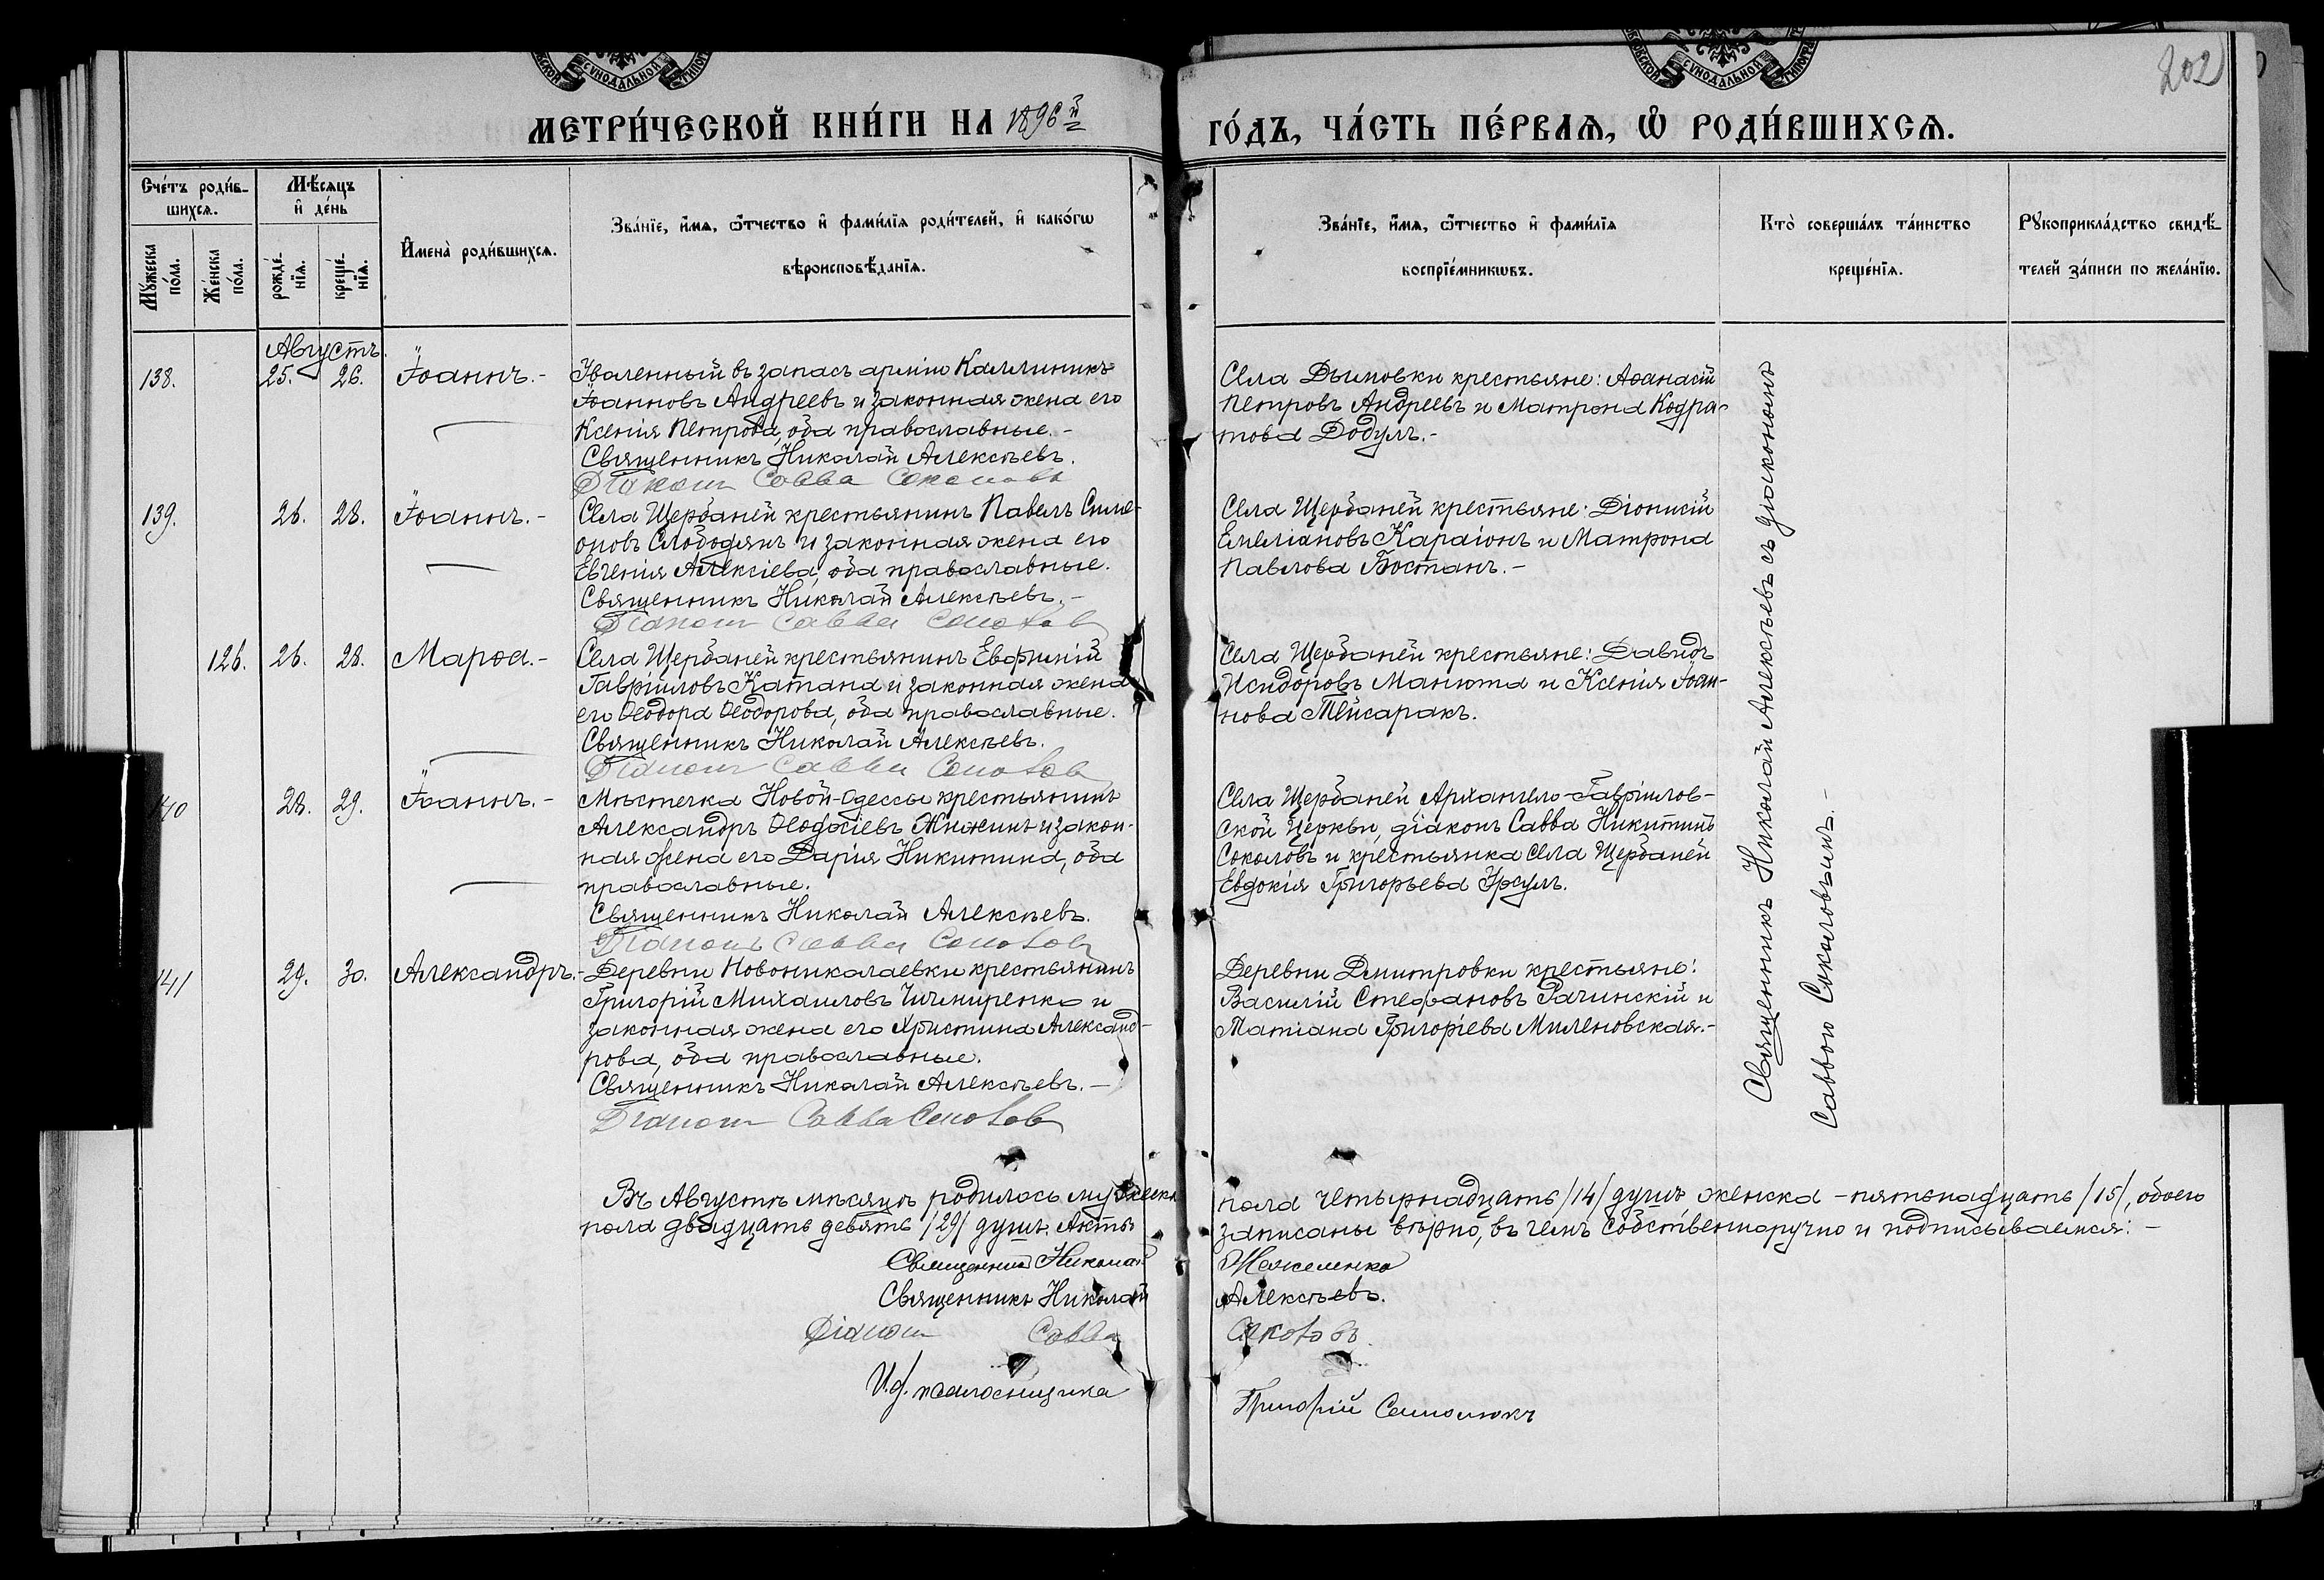 МОСКОВСКОЙ СѴНОДАЛЬНОЙ ТИПОГР
МОСКОВСКОЙ СѴНОДАЛЬНОЙ ТИПОГР
202
МЕТРИ́ЧЕСКОЙ КНИ́ГИ НА 1896й
ГО́ДЪ, ЧА́СТЬ ПЕ́РВАѦ, Ѡ҆ РОДИ́ВШИХСѦ.
Сче́тъ роди́в-
шихсѧ.
Мѣ́сѧцъ
и҆ де́нь
Мꙋ́жеска по́ла.
Же́нска по́ла.
рожде́-
нїѧ.
креще́-
нїѧ.
И҆мена̀ роди́вшихсѧ.
Зва́нїе, и҆́мѧ, ѻ҆́тчество и҆ фами́лїѧ роди́телей, и҆ како́гѡ
вѣроисповѣ́данїѧ.
Зва́нїе, и҆́мѧ, ѻ҆́тчество и҆ фами́лїѧ
воспрїе́мникѡвъ.
Кто̀ соверша́лъ та́инство
креще́нїѧ.
Рꙋкоприкла́дство свидѣ́-
телей за́писи по жела́нїю.
Августъ.
138. 25. 26. Іоаннъ.-
Уволенный въ запасъ арміи Каллиникъ
Іоанновъ Андреевъ и законная жена его
Ксенія Петрова, оба православные.-
Священникъ Николай Алексѣевъ.
Діаконъ Савва Соколовъ
Села Дымовки крестьяне: Аѳанасій
Петровъ Андреевъ и Матрона Кодра-
това Додулъ.-
139. 26. 28. Іоаннъ.-
Села Щербаней крестьянинъ Павелъ Симе-
оновъ Слободянъ и законная жена его
Евгенія Алексіева, оба православные.
Священникъ Николай Алексѣевъ.-
Діаконъ Савва Соколовъ
Села Щербаней крестьяне: Діонисій
Емеліановъ Караіонъ и Матрона
Павлова Бостанъ.-
126. 26. 28. Марѳа.-
Села Щербаней крестьянинъ Евфимій
Гавріиловъ Катана и законная жена
его Ѳеодора Ѳеодорова, оба православные.
Священникъ Николай Алексѣевъ.
Діаконъ Савва Соколовъ
Села Щербаней крестьяне: Давидъ
Исидоровъ Манюта и Ксенія Іоан-
нова
140 28. 29. Іоаннъ.-
Мѣстечка Новой-Одессы крестьянинъ
Александръ Ѳеодосіевъ Жижинъ и закон-
ная жена его Дарія Никитина, оба
православные.
Священникъ Николай Алексѣевъ.
Діаконъ Савва Соколовъ
Села Щербаней Архангело-Гавріилов-
ской Церкви, діаконъ Савва Никитинъ
Соколовъ и крестьянка села Щербаней
Евдокія Григорьева Урсулъ.
141 29. 30. Александръ.-
Деревни Новониколаевки крестьянинъ
Григорій Михаиловъ Чичмиренко и
законная жена его Христина Александ-
рова, оба православные.
Священникъ Николай Алексѣевъ.-
Діаконъ Савва Соколовъ
Деревни Дмитровки крестьяне:
Василій Стефановъ Рачинскій и
Татіана Григоріева Миленовская.-
Священникъ Николай Алексѣевъ съ діакономъ
Саввою Соколовымъ.-
Въ Августѣ мѣсяцѣ родилось мужеска пола четырнадцать /14/ душъ женска - пятьнадцать /15/, обоего
пола двадцать девять /29/ душъ. Акты записаны вѣрно, въ чемъ собственноручно и подписываемся:-
Священникъ Николай
Священникъ Николай Алексѣевъ.
Діаконъ Савва Соколовъ.
И.д. псаломщика Григорій